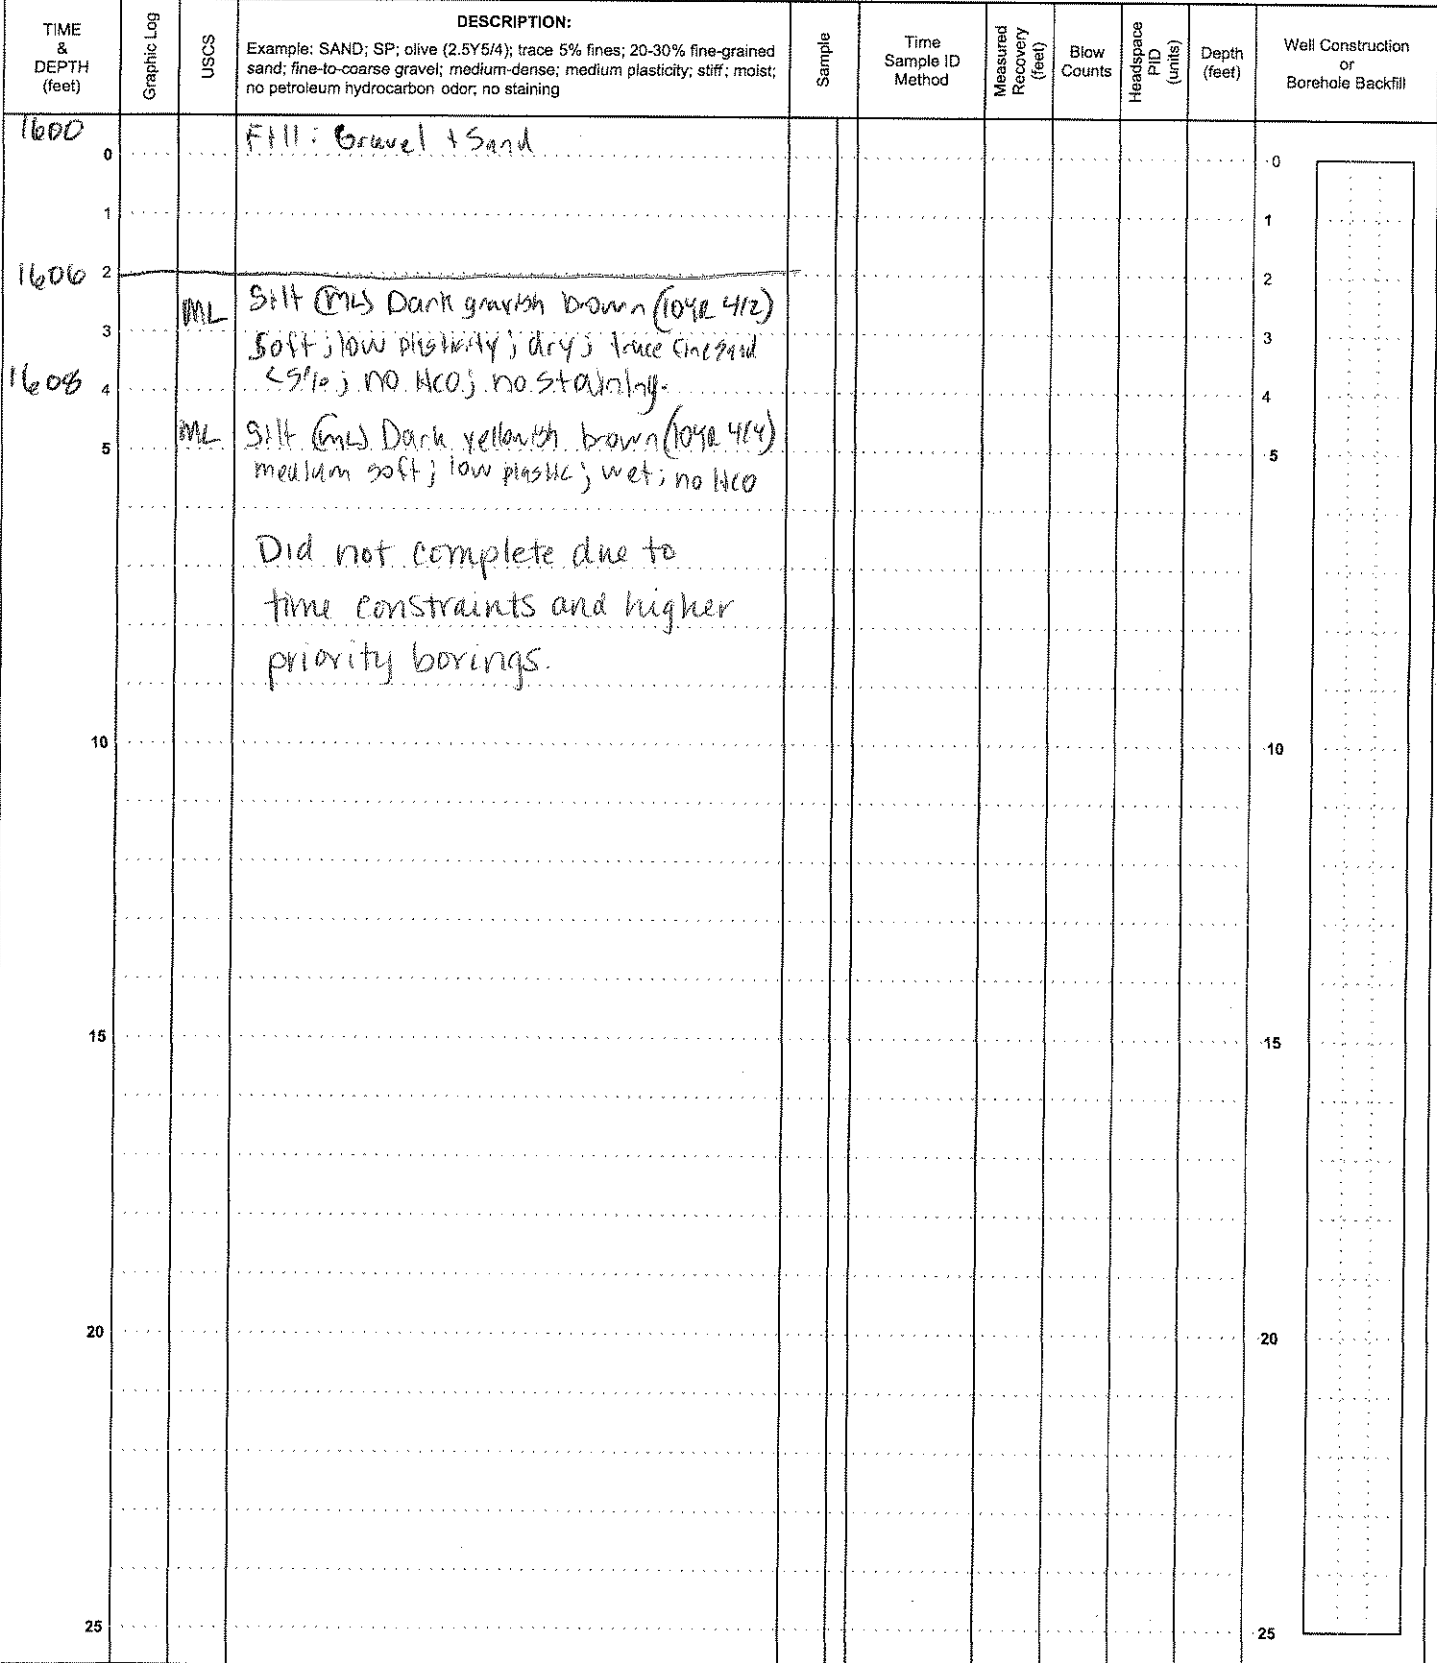 TIME
&
DEPTH
(feet)
Graphic Log
USCS
DESCRIPTION:
Example: SAND; SP; olive (2.5Y5/4); trace 5% fines; 20-30% fine-grained
sand; fine-to-coarse gravel; medium-dense; medium plasticity; stiff; moist;
no petroleum hydrocarbon odor; no staining
Sample
Time
Sample ID
Method
Measured
Recovery
(feet)
Blow
Counts
Headspace
PID
(units)
Depth
(feet)
Well Construction
or
Borehole Backfill
1600
Fill: Gravel + Sand
0
0
1
1
1606 2
2
ML Silt (ML) Dark grayish brown (10YR 4/2)
3 Soft; low plasticity; dry; trace fine sand
3
1608 4 <5%; no HCO; no staining.
4
ML Silt (ML) Dark yellowish brown (10YR 4/4)
5
5
medium soft; low plastic; wet; no HCO
Did not complete due to
time constraints and higher
priority borings.
10
10
15
15
20
20
25
25